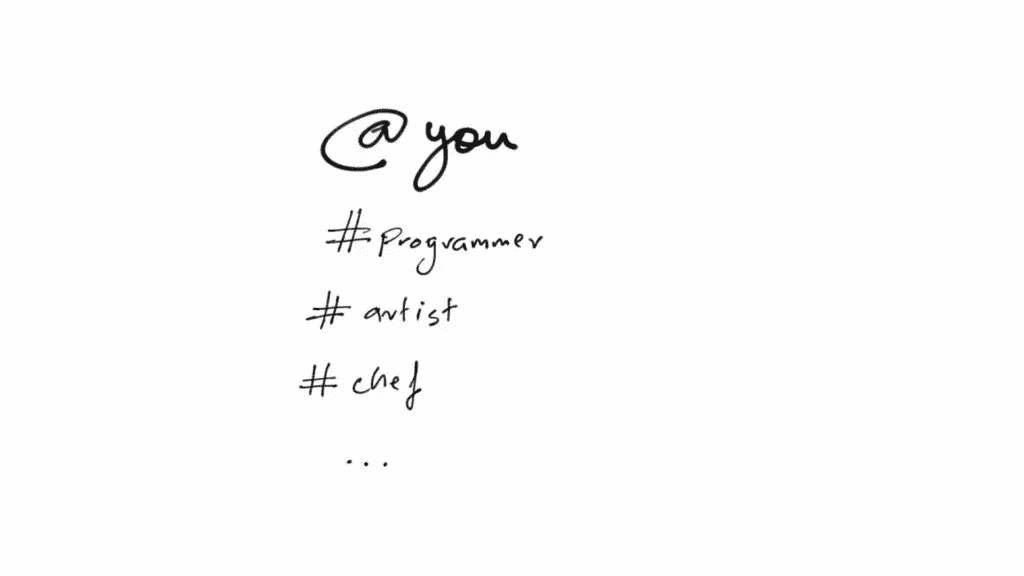 @you
#programmer
# artist
# chef
...